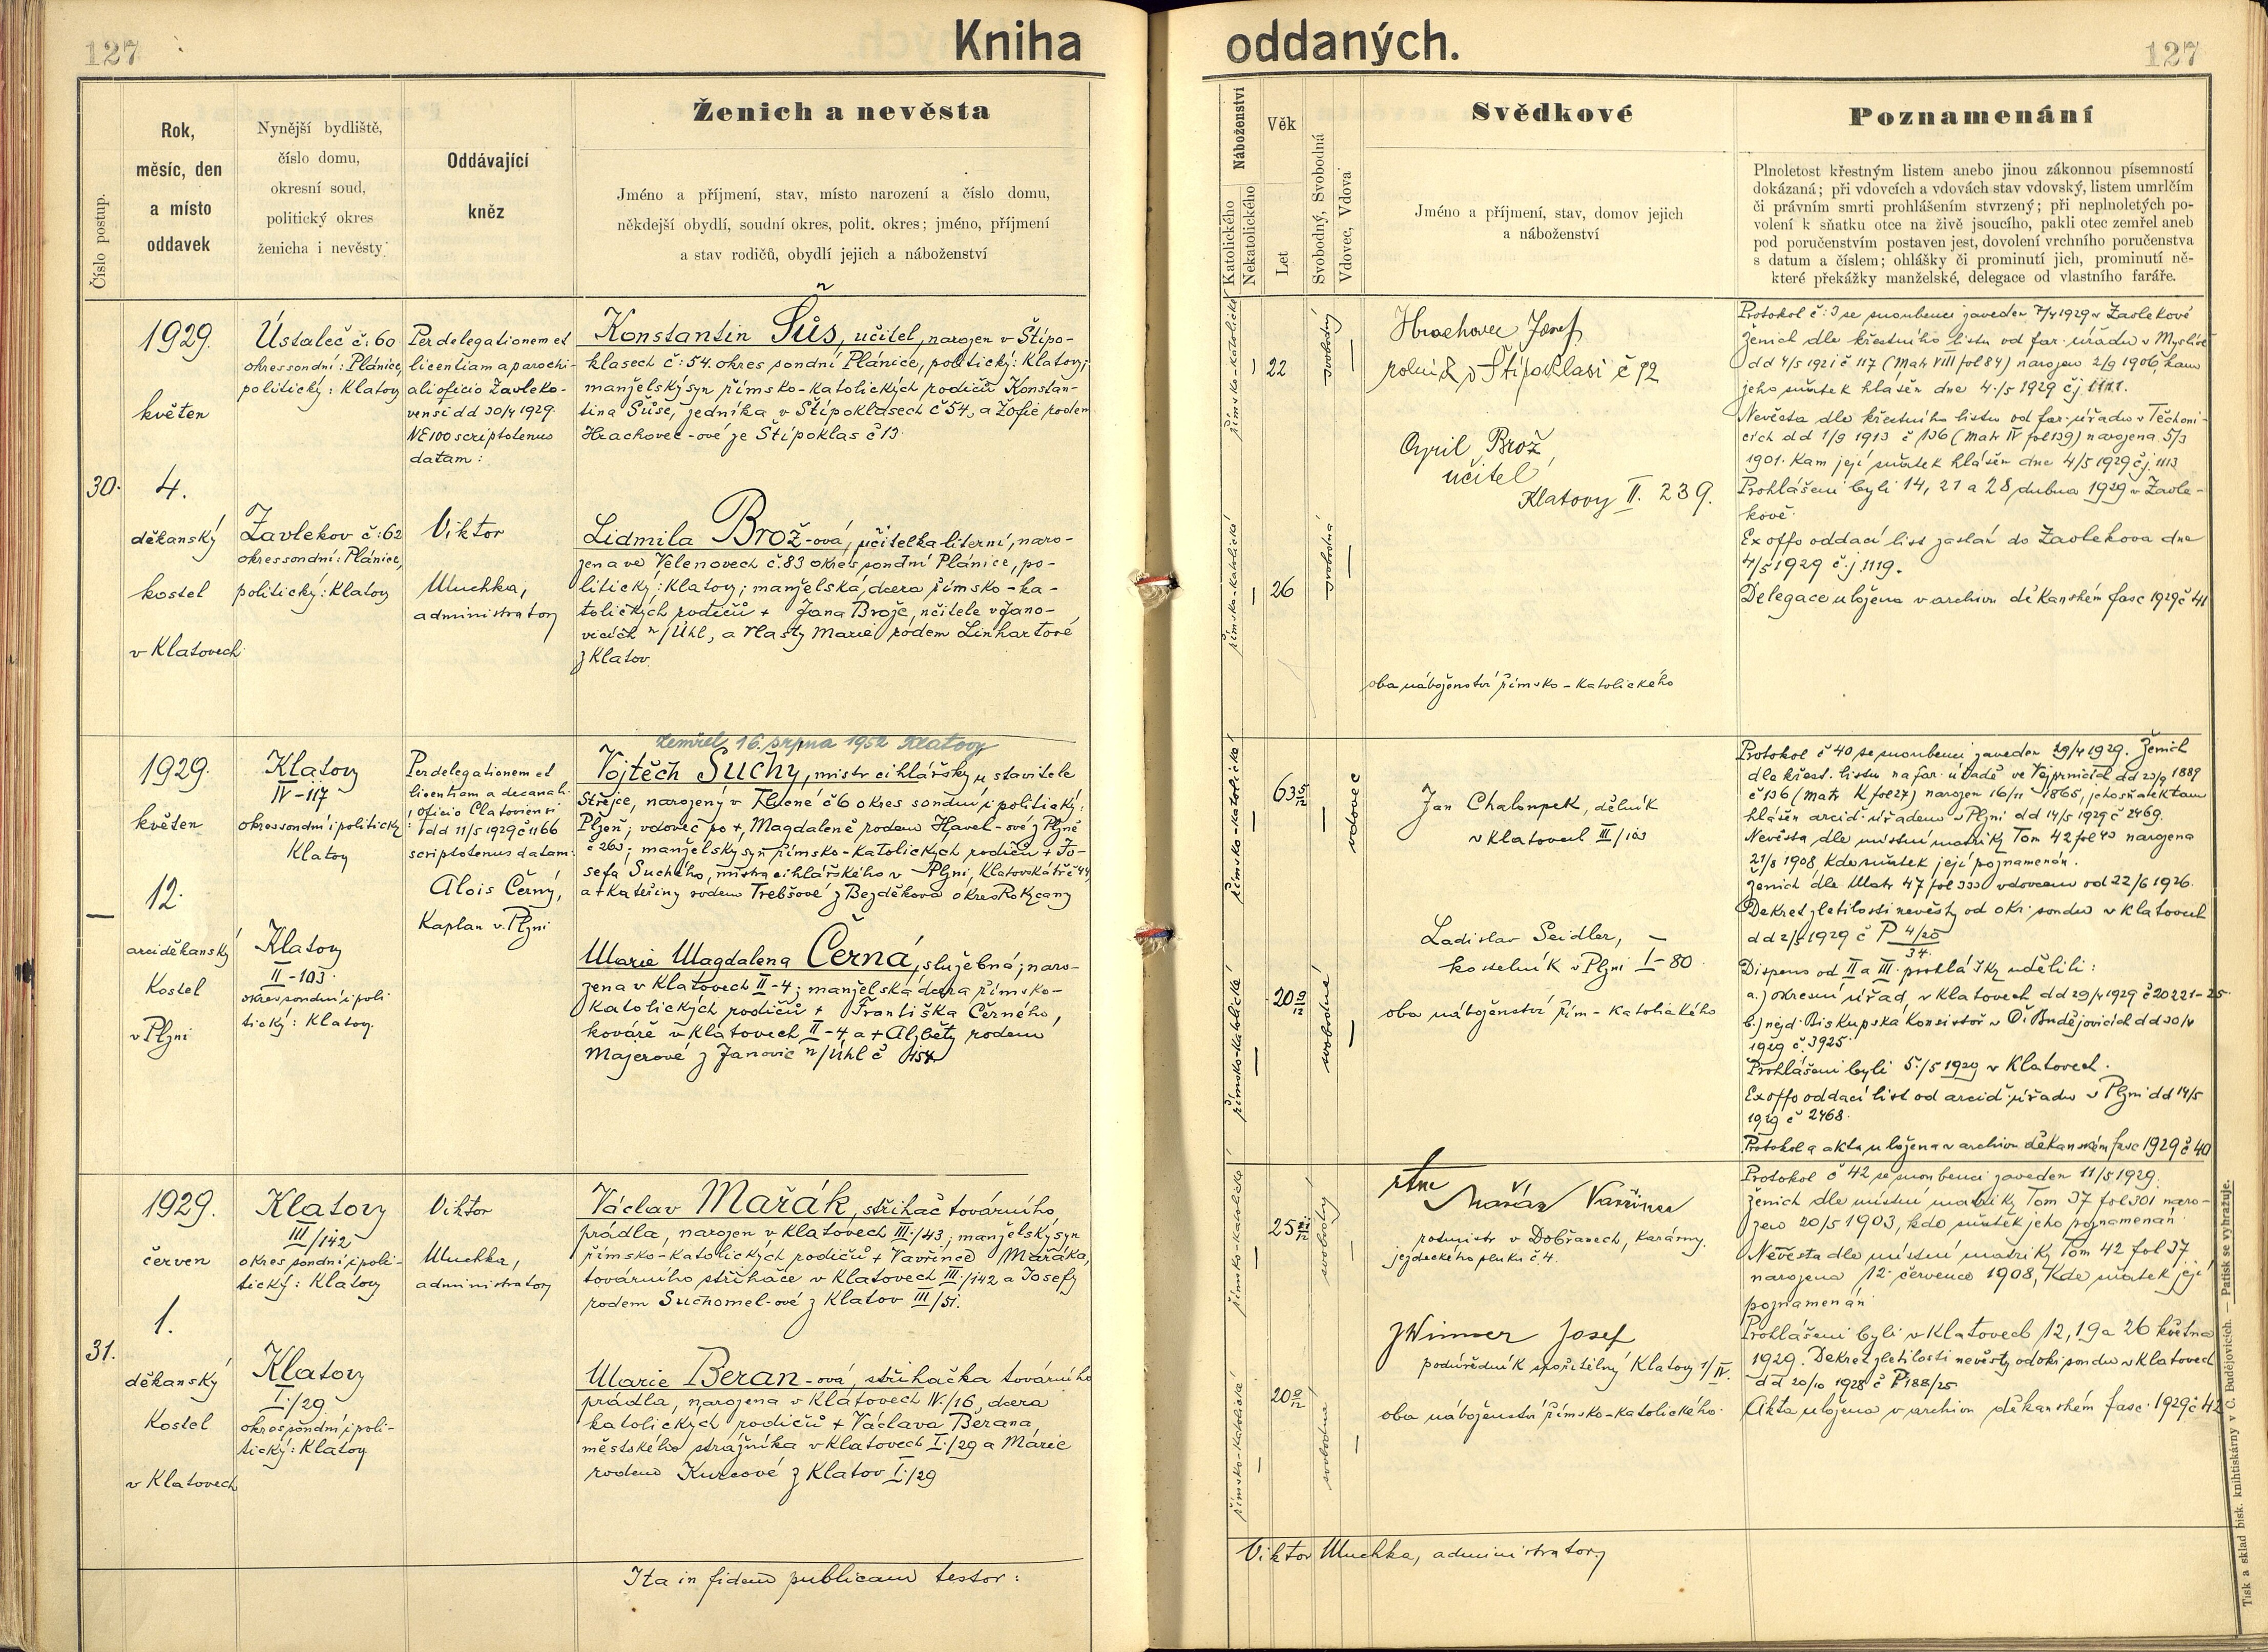 127
Kniha
Číslo postup.
Rok,
měsíc, den
a místo
oddavek
Nynější bydliště,
číslo domu,
okresní soud,
politický okres
ženicha i nevěsty
Oddávající
kněz
Ženich a nevěsta
Jméno a příjmení, stav, místo narození a číslo domu,
někdejší obydlí, soudní okres, polit. okres; jméno, příjmení
a stav rodičů, obydlí jejich a náboženství
30.
1929.
květen
4.
děkanský
kostel
v Klatovech
Ústaleč č: 60
okres soudní: Plánice,
politický: Klatovy
Žavlekov č: 62
okres soudní: Plánice,
politický: Klatovy
Per delegationem et
licentiam a parochi-
ali oficio Žavleko-
vensi dd 30/4 1929.
NE 100 scriptotenus
datam:
Viktor
Muchka,
administrator
Konstantin Šůs, učitel, narozen v Štípo-
klasech č: 54. okres soudní Plánice, politický: Klatovy;
manželský syn římsko-katolických rodičů Konstan-
tina Šůse, zedníka v Štípoklasech č 54, a Žofie rodem
Hrachovec-ové ze Štípoklas č 13.
Lidmila Brož-ová, učitelka literní, naro-
zena ve Velenovech č. 83 okres soudní Plánice, po-
litický: Klatovy; manželská dcera římsko-ka-
tolických rodičů + Jana Brože, učitele v Jano-
vicích n/Úhl, a Vlasty Marie rodem Linhartové
z Klatov.
1929.
květen
12.
arciděkanský
kostel
v Plzni
Klatovy
IV-117
okres soudní i politický
Klatovy
Klatovy
II-103.
okres soudní i poli
tický: Klatovy.
Per delegationem et
licentiam a decanali
oficio Clatoviensi
dd 11/5 1929 č 1166
scriptotenus datam:
Alois Černý,
Kaplan v Plzni
zemřel 16. srpna 1952 Klatovy
Vojtěch Suchý, mistr cihlářský u stavitele
okres soudní i politický:
Plzeň; vdovec po + Magdaleně rodem Havel-ové z Plzně
č 263; manželský syn římsko-katolických rodičů + Jo-
sefa Suchého, mistra cihlářského v Plzni, Klatovská tř č 44
a + Kateřiny rodem Trebšové z Bezděkova okres Rokycany
Marie Magdalena Černá, služebná; naro-
zena v Klatovech II-4; manželská dcera římsko-
katolických rodičů + Františka Černého,
kováře v Klatovech II-4, a + Alžběty rodem
Majerové z Janovic n/Úhl č 154
31.
1929.
červen
1.
děkanský
Kostel
v Klatovech
Klatovy
III/142
okres soudní i poli-
tický: Klatovy
Klatovy
I./29
okres soudní i poli-
tický: Klatovy
Viktor
Muchka,
administrator
Václav Mařák, střihač továrního
prádla, narozen v Klatovech III./43; manželský syn
římsko-katolických rodičů + Vavřince Mařáka,
továrního střihače v Klatovech III./142 a Josefy
rodem Suchomel-ové z Klatov III/51.
Marie Beran-ová, střihačka továrního
prádla, narozena v Klatovech IV./16, dcera
katolických rodičů + Václava Berana,
městského strážníka v Klatovech I./29 a Marie
rodem Kurcové z Klatov I./29
Ita in fidem publicam testor:
127
oddaných.
Náboženství
Katolického
Nekatolického
Věk
Let
Svobodný, Svobodná
Vdovec, Vdova
Svědkové
Jméno a příjmení, stav, domov jejich
a náboženství
Poznamenání
Plnoletost křestným listem anebo jinou zákonnou písemností
dokázaná; při vdovcích a vdovách stav vdovský, listem umrlčím
či právním smrti prohlášením stvrzený; při neplnoletých po-
volení k sňatku otce na živě jsoucího, pakli otec zemřel aneb
pod poručenstvím postaven jest, dovolení vrchního poručenstva
s datum a číslem; ohlášky či prominutí jich, prominutí ně-
které překážky manželské, delegace od vlastního faráře.
římsko-katolické
22
svobodný
římsko-katolické
26
svobodná
Hrachovec Josef
rolník v Štípoklasi č 12
Cyril Brož,
učitel
Klatovy II. 239.
oba náboženství římsko-katolického
Protokol č: 3 se snoubenci zaveden 7/4 1929 v Žavlekově
Ženich dle křestního listu od far. úřadu v
dd 4/5 1921 č 117 (Matr VIII fol 84) narozen 2/9 1906, kam
jeho sňatek hlášen dne 4./5 1929 čj 1111.
Nevěsta dle křestního listu od far. úřadu v Těchoni-
cích dd 1/9 1913 č 136 (Matr IV fol 139) narozena 5/3
1901. Kam její sňatek hlášen dne 4/5 1929 čj. 1113
Prohlášeni byli 14, 21 a 28 dubna 1929 v Žavle-
kově.
Ex offo oddací list zaslán do Žavlekova dne
4/5 1929 č.j 1119.
Delegace uložena v archivu děkanském fasc 1929 č 41
římsko-katolické
63 5/12
vdovec
římsko-katolické
20 9/12
svobodná
Jan Chaloupek, dělník
v Klatovech III/103
Ladislav Seidler,
kostelník v Plzni I-80
oba náboženství řím-katolického
Protokol č 40 se snoubenci zaveden 29/4 1929. Ženich
dle křest. listu na far. úřadě ve Vejprnicích dd 23/9 1889
č 136 (matr K fol 27) narozen 16/11 1865, jeho sňatek tam
hlášen arcid. úřadem v Plzni dd 14/5 1929 č 2469.
Nevěsta dle místní matriky Tom 42 fol 43 narozena
21/8 1908, kde sňatek její poznamenán.
Ženich dle Matr 47 fol 333 vdovcem od 22/6 1926.
Dekret zletilosti nevěsty od okr. soudu v Klatovech
dd 2/5 1929 č P 4/25
34.
Dispens od II a III. prohlášky udělili:
a.) okresní úřad, v Klatovech dd 29/4 1929 č 20221-25
b.) nejd. Biskupská Konsistoř v Č. Budějovicích dd 30/4
1929 č. 3925.
Prohlášeni byli 5./5 1929 v Klatovech.
Ex offo oddací list od arcid. úřadu v Plzni dd 14/5
1929 č 2468.
Protokol a akta uložena v archivu děkanském fasc 1929 č 40
římsko-katolické
25
svobodný
římsko-katolické
20 9/12
svobodná
rtm
Mařák Vavřinec
rotmistr v Dobřanech, kasárny.
jezdeckého pluku č. 4.
Josef
podúředník spořitelny Klatovy 1/IV.
oba náboženství římsko-katolického.
Protokol č 42 se snoubenci zaveden 11/5 1929.
Ženich dle místní matriky Tom 37 fol 301 naro-
zen 20/5 1903, kde sňatek jeho poznamenán.
Nevěsta dle místní matriky Tom 42 fol 37
narozena 12. července 1908, kde sňatek její
poznamenán
Prohlášeni byli v Klatovech 12, 19 a 26 května
1929. Dekret zletilosti nevěsty od okr. soudu v Klatovech
dd 20/10 1928 č P 188/25
Akta uložena v archivu děkanském fasc. 1929 č 42
Viktor Muchka, administrator
Tisk a sklad bisk. knihtiskárny v Č. Budějovicích. — Patisk se vyhražuje.